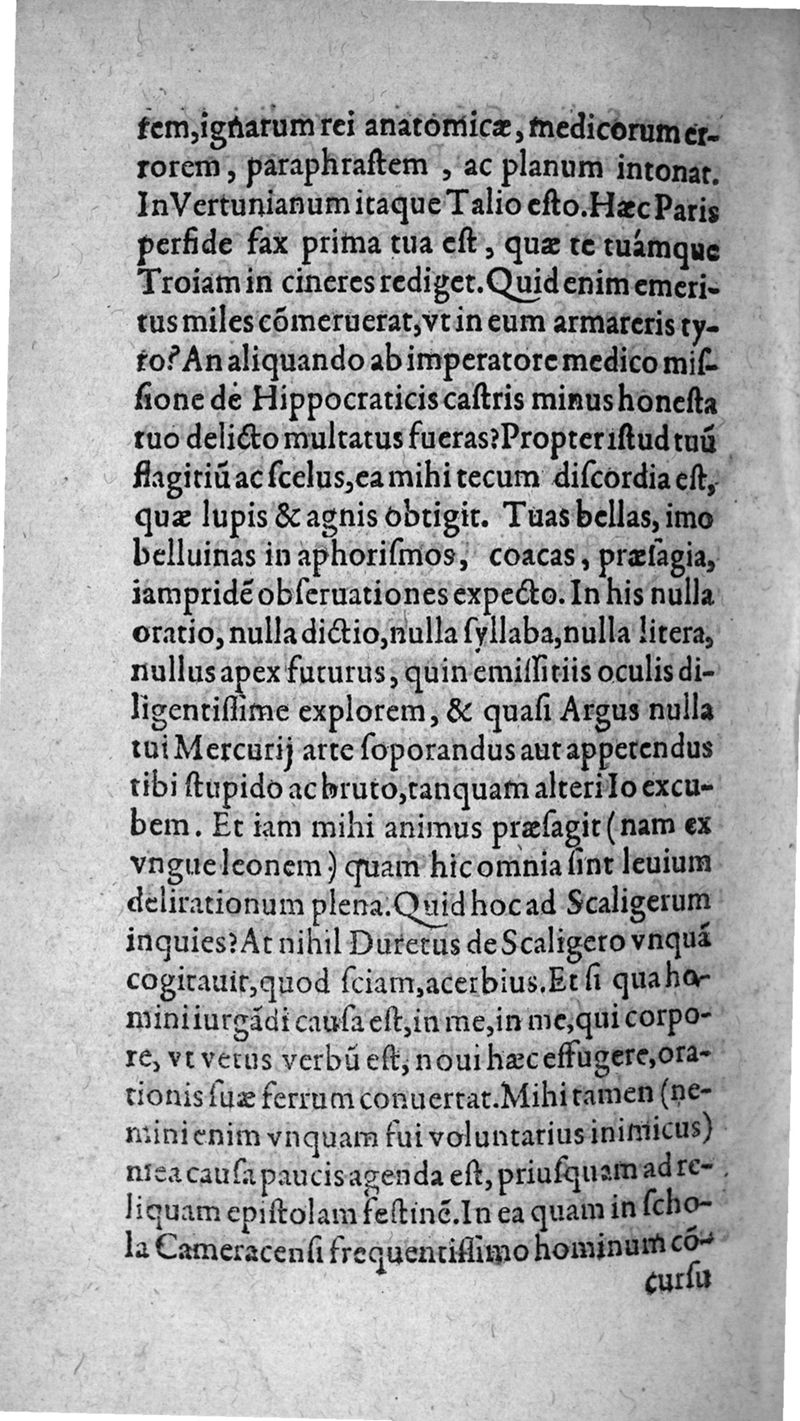 rem,ignarum rei anatomicæ, medicorum er-
rorem, paraphraſtem , ac planum intonat.
In Vertunianum itaque Talio eſto. Hæc Paris
perfide fax prima tua eſt, quæ te tuámque
Troiam in cineres rediget. Quid enim emeri-
tus miles cõmeruerat, vt in eum armareris ty-
ro? An aliquando ab imperatore medico miſ-
ſione de Hippocraticis caſtris minus honeſta
tuo delicto multatus fueras? Propter iſtud tuũ
flagitiũ ac ſcelus, ea mihi tecum diſcordia eſt,
quæ lupis & agnis obtigit. Tuas bellas, imo
belluinas in aphoriſmos, coacas, præſagia,
iampridẽ obſeruationes expecto. In his nulla
oratio, nulla dictio, nulla ſyllaba, nulla litera,
nullus apex futurus, quin emiſſitiis oculis di-
ligentiſſime explorem, & quaſi Argus nulla
tui Mercurij arte ſoporandus aut appetendus
tibi ſtupido ac bruto, tanquam alteri Io excu-
bem. Et iam mihi animus præſagit (nam ex
vngue leonem) quam hic omnia ſint leuium
delirationum plena. Quid hoc ad Scaligerum
inquies? At nihil Duretus de Scaligero vnquã
cogitauit, quod ſciam, acerbius. Et ſi qua ho-
mini iurgãdi cauſa eſt, in me, in me, qui corpo-
re, vt vetus verbũ eſt, noui hæc effugere, ora-
tionis ſuæ ferrum conuertat. Mihi tamen (ne-
mini enim vnquam fui voluntarius inimicus)
mea cauſa paucis agenda eſt, priuſquam ad re-
liquam epiſtolam feſtinẽ. In ea quam in ſcho-
la Cameracenſi frequentiſſimo hominum cõ-
curſu